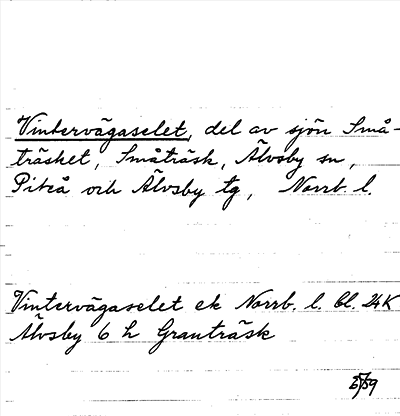 Vintervägaselet, del av sjön Små-
träsket, Småträsk, Älvsby sn,
Piteå och Älvsby tg, Norrb. l.
Vintervägaselet ek Norrb. l. bl. 24K
Älvsby 6 h Granträsk